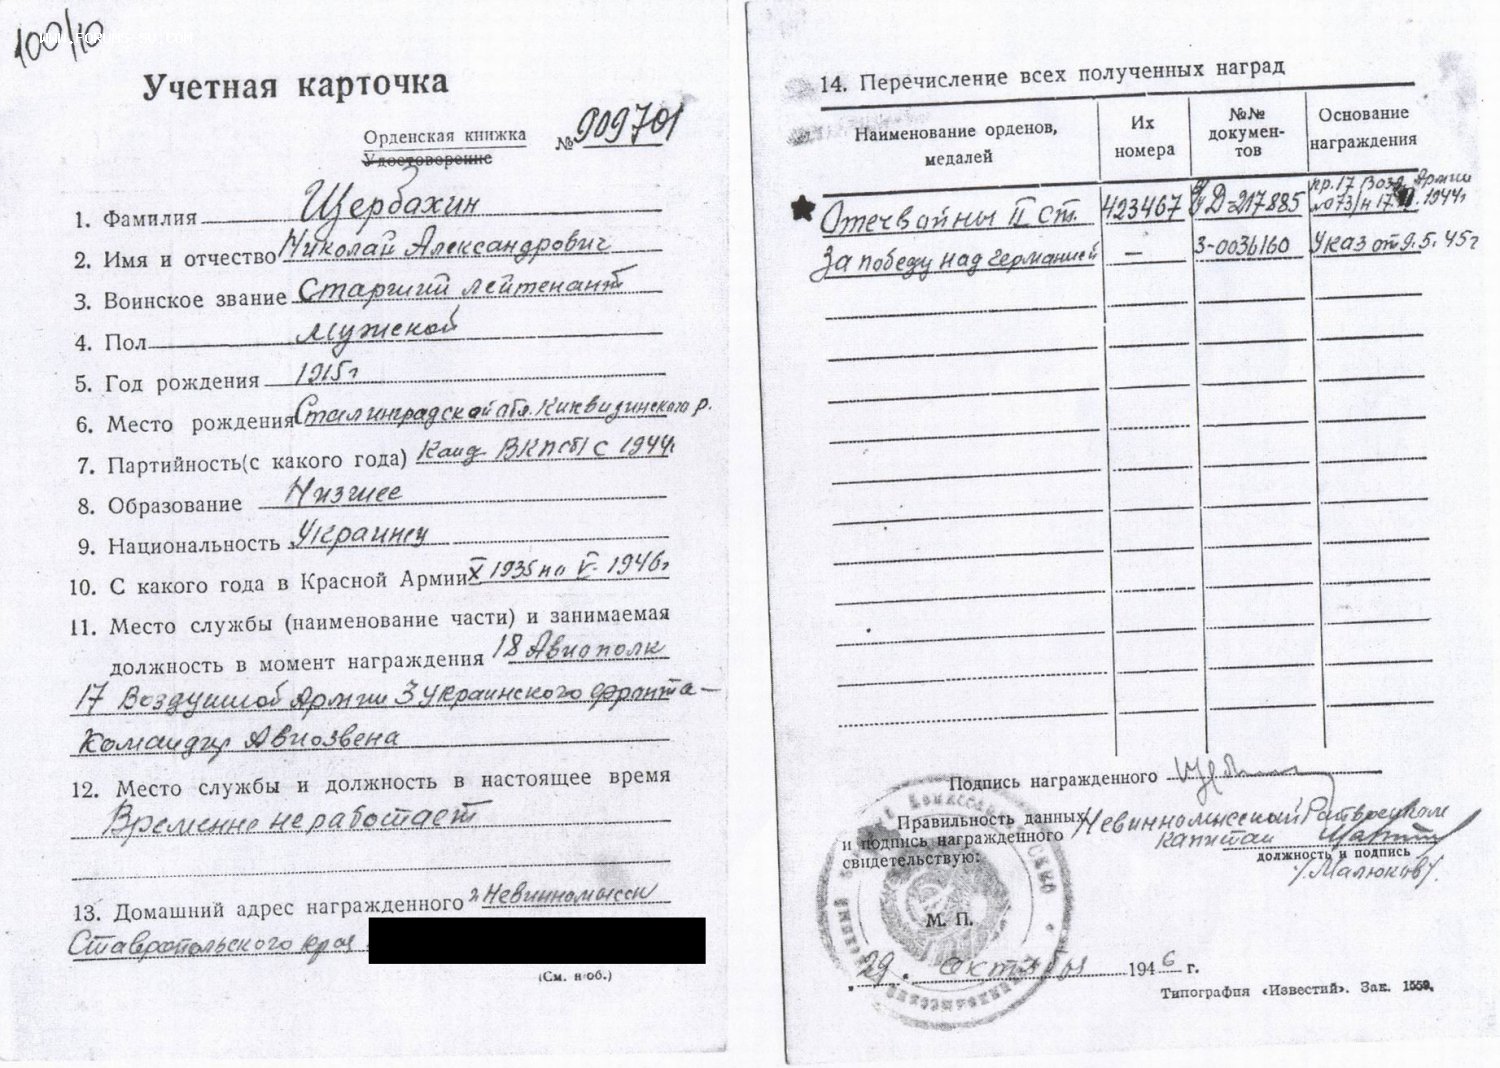 100/10
Учетная карточка
Орденская книжка № 909701
Удостоверение
1. Фамилия Щербахин
2. Имя и отчество Николай Александрович
3. Воинское звание Старший лейтенант
4. Пол мужской
5. Год рождения 1915г
6. Место рождения Сталинградской обл. Киквидзинского р.
7. Партийность(с какого года) Канд. ВКП(б) с 1944г
8. Образование Низшее
9. Национальность Украинец
10. С какого года в Красной Армии X 1935 по V-1946г
11. Место службы (наименование части) и занимаемая
должность в момент награждения 18 Авиополк
17 Воздушной Армии 3 Украинского фронта –
Командир Авиозвена
12. Место службы и должность в настоящее время
Временно не работает
13. Домашний адрес награжденного г Невинномысск
Ставропольского края
(См. н об.)
14. Перечисление всех полученных наград
Наименование орденов, медалей
Их номера
№№ документов
Основание награждения
Отеч войны II ст. 423467 Д-217885 пр. 17 Возд. Армии №073/н 17. 1944г
За победу над Германией — З-0036160 Указ от 9.5.45г
Подпись награжденного
Правильность данных Невинномысский
и подпись награжденного капитан
свидетельствую:
должность и подпись
/Малюков/.
М. П.
29. октября 1946 г.
Типография «Известий». Зак. 1559.